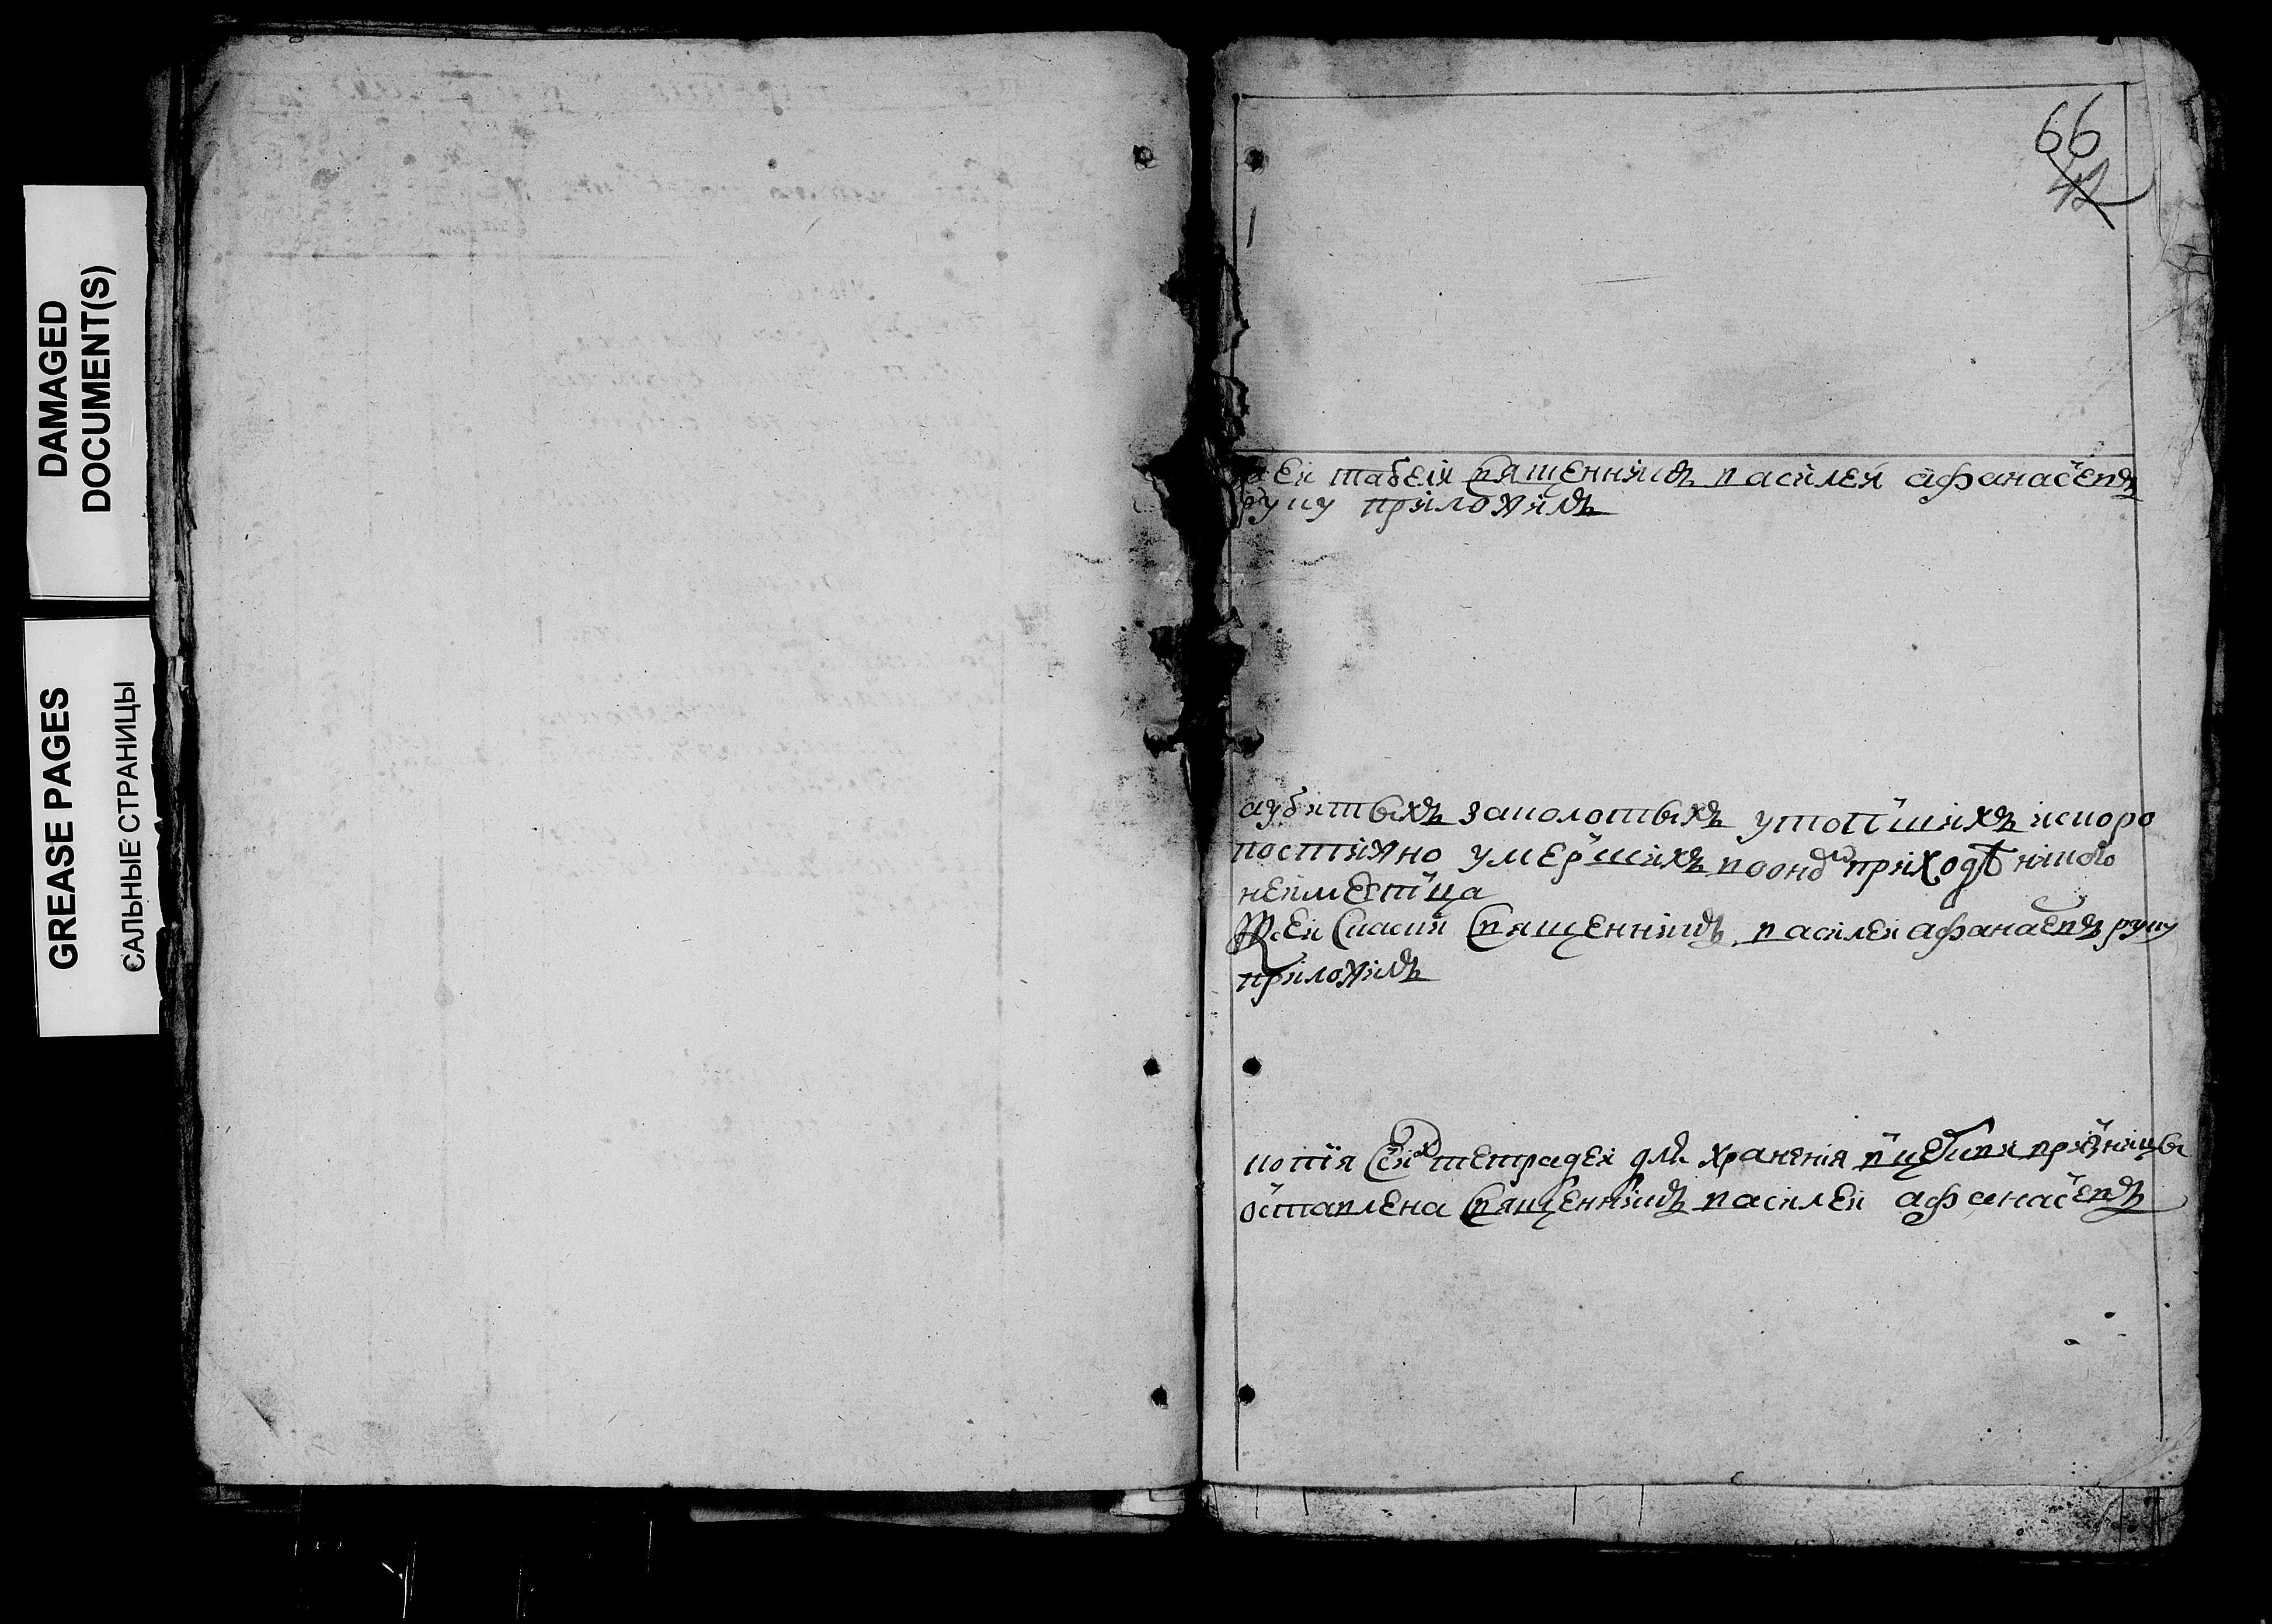 DAMAGED
DOCUMENT(S)
GREASE PAGES
САЛЬНЫЕ СТРАНИЦЫ
66
42
Ксеи табели священникъ василеи афанасевъ
руку приложилъ
аубитыхъ заколотыхъ утопшихъ искоро
постижно умершихъ воонои приходѣ никого
неимеется
Ксеи скаски священникъ василеи афанасевъ руку
приложилъ
копия сеи тетрадеи для хранения вцеркви вризницы
оставлена священникъ василеи афанасевъ